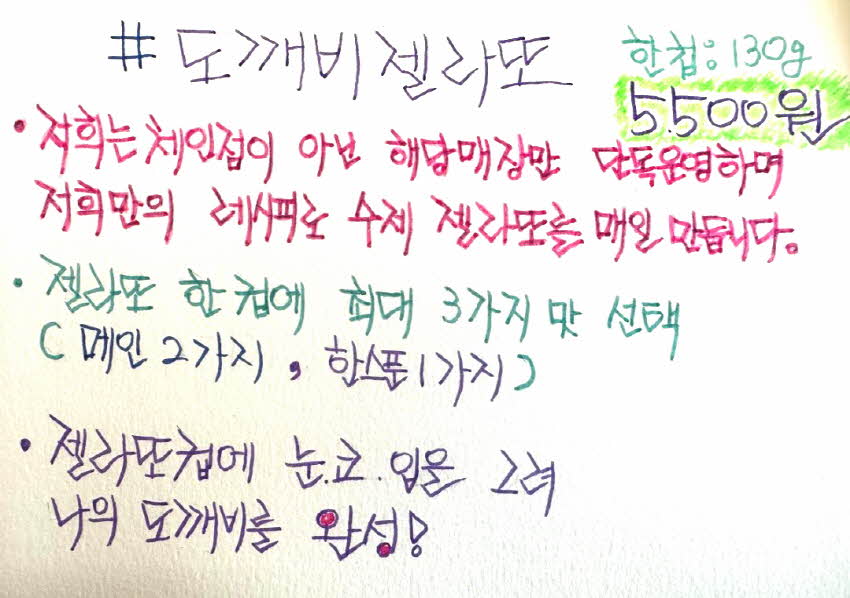 # 도깨비젤라또
한컵: 130g
5.500원
• 저희는 체인점이 아닌 해당매장만 단독운영하며
저희만의 레시피로 수제 젤라또를 매일 만듭니다.
• 젤라또 한컵에 최대 3가지 맛 선택
( 메인 2가지 , 한스푼 1가지 )
• 젤라또컵에 눈.코.입을 그려
나의 도깨비를 완성!